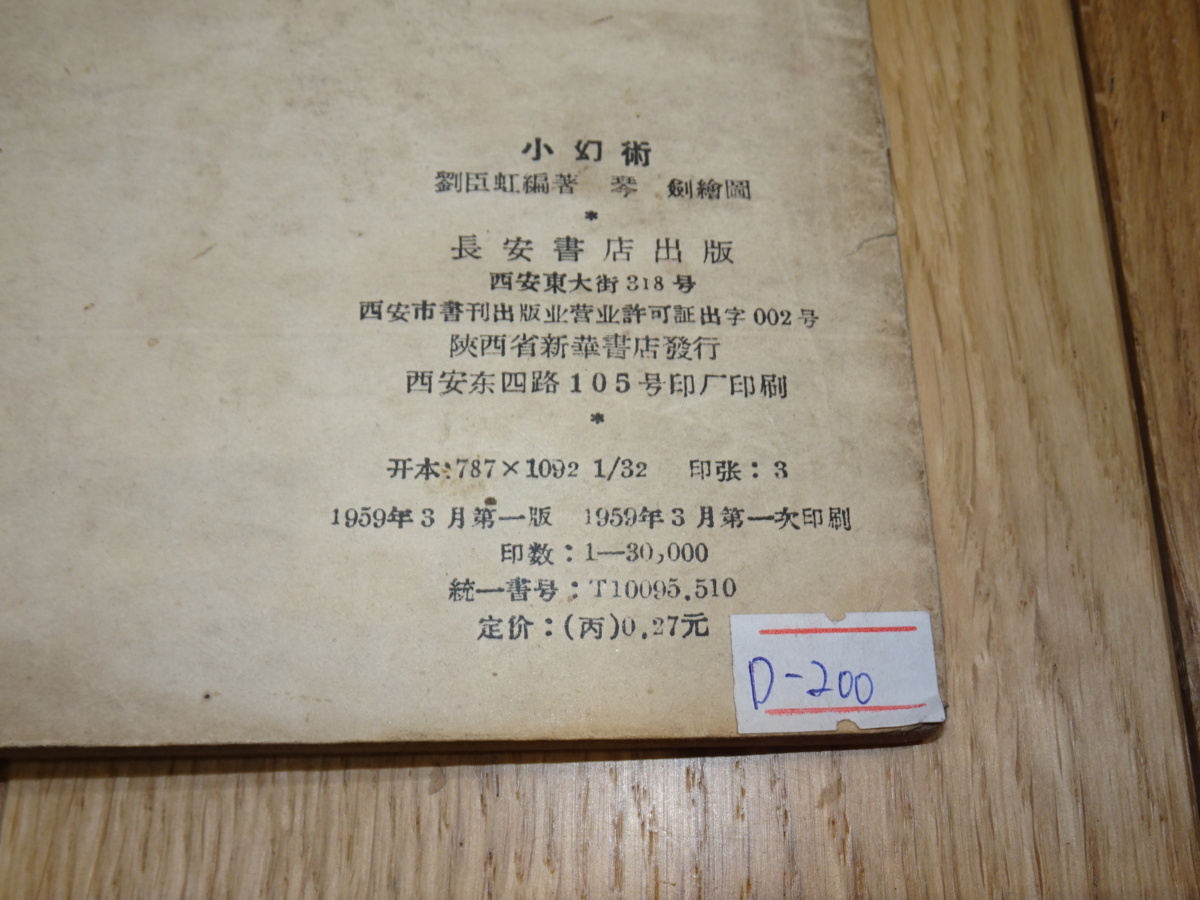 小幻術
劉臣虹編著 琴 劍繪圖
*
長安書店出版
西安東大街318号
西安市書刊出版业营业許可証出字002号
陝西省新華書店發行
西安东四路105号印厂印刷
*
开本:787×1092 1/32 印张:3
1959年3月第一版 1959年3月第一次印刷
印数:1—30,000
統一書号:T10095.510
定价:(丙)0.27元
D-200